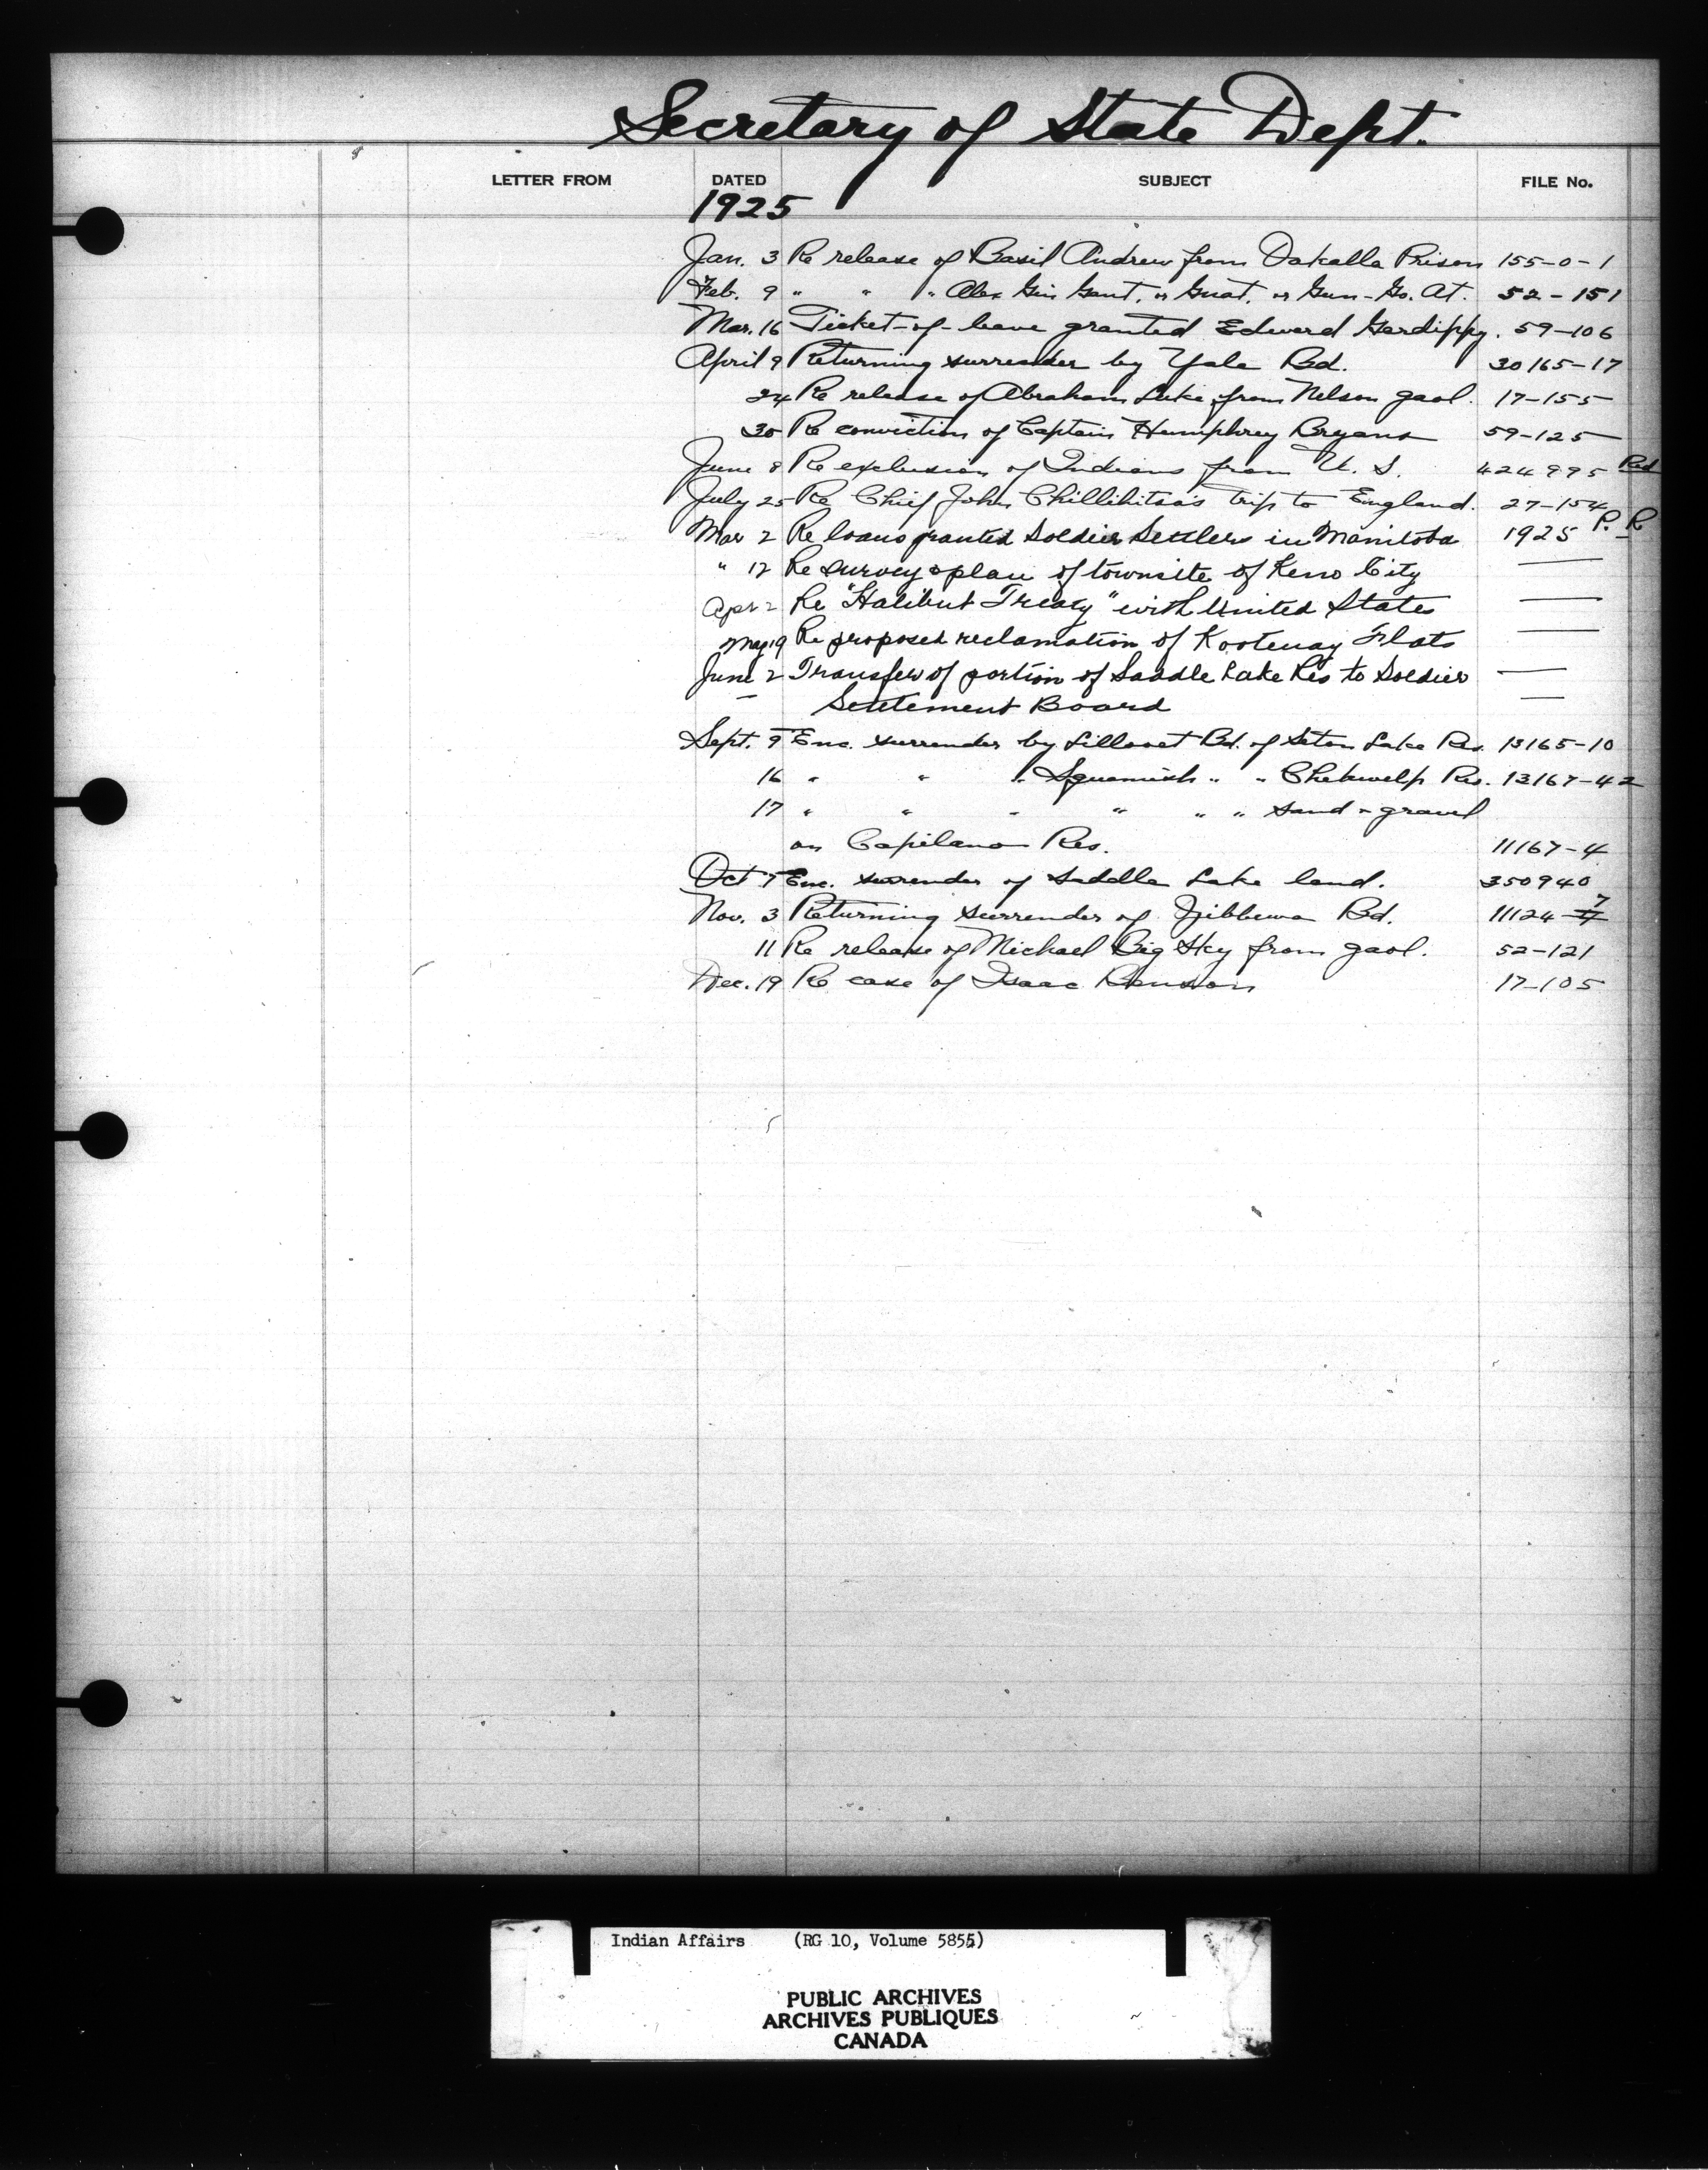 Secretary of State Dept.
LETTER FROM DATED SUBJECT FILE No.
1925
Jan. 3 Re release of Basil Andrew from Oakalla Prison 155-0-1
Feb. 9 " " " Alex Gin Gaut, or Guat, or Gun-Go. At. 52-151
Mar. 16 Ticket-of-leave granted Edward Gardippy. 59-106
April 9 Returning surrender by Yale Bd. 30165-17
24 Re release of Abraham Luke from Nelson gaol. 17-155
30 Re conviction of Captain Humphrey Bryans 59-125
June 8 Re exclusion of Indians from U. S. 424995 Red
July 25 Re Chief John Chillihitsa's trip to England. 27-154
Mar 2 Re loans granted Soldier Settlers in Manitoba 1925 P. R
" 12 Re survey & plan of townsite of Keno City —
Apr 2 Re "Halibut Treaty" with United States —
May 19 Re proposed reclamation of Kootenay Flats —
June 2 Transfer of portion of Saddle Lake Res to Soldier —
Settlement Board —
Sept. 9 Enc. surrender by Lillooet Bd. of Seton Lake Res. 13165-10
16 " " " Squamish " " Chekwelp Res. 13167-42
17 " " " " " " sand & gravel
on Capilano Res. 11167-4
Oct 7 Enc. surrender of Saddle Lake land. 350940
Nov. 3 Returning surrender of Ojibbewa Bd. 11124-7
11 Re release of Michael Big Sky from gaol. 52-121
Dec. 19 Re case of Isaac 17-105
Indian Affairs (RG 10, Volume 5855)
PUBLIC ARCHIVES
ARCHIVES PUBLIQUES
CANADA